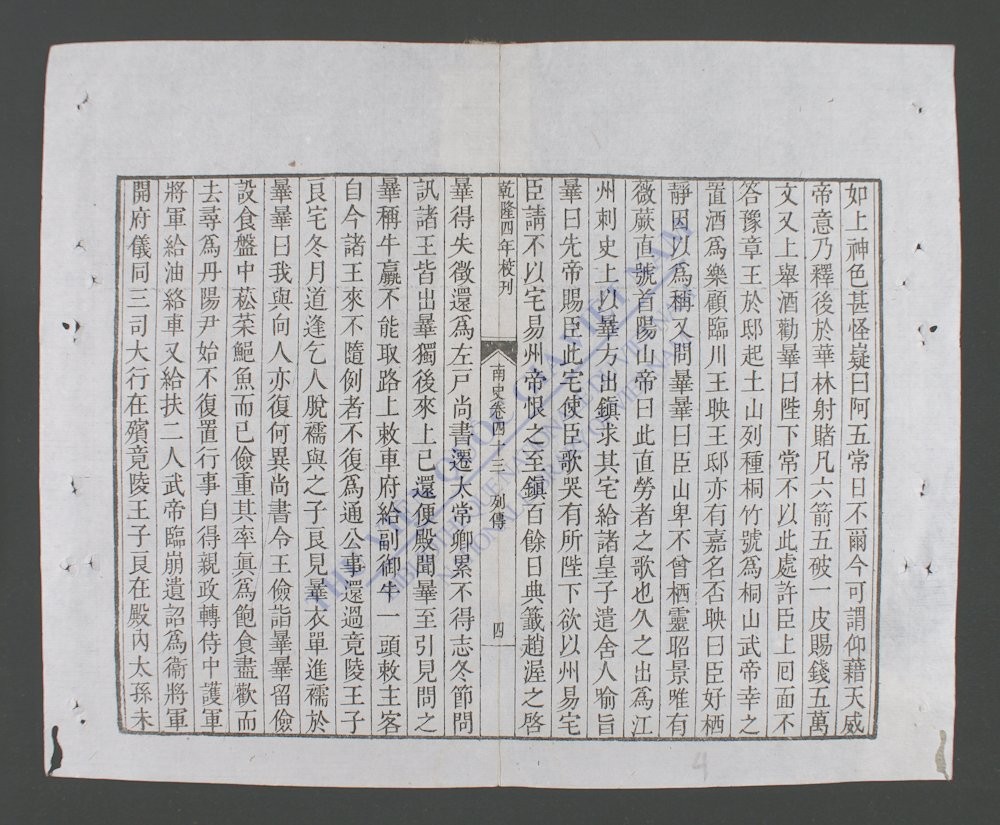 如上神色甚怪嶷曰阿五常日不爾今可謂仰藉天威
帝意乃釋後於華林射賭凡六箭五破一皮賜錢五萬
文又上舉酒勸曅曰陛下常不以此處許臣上囘面不
答豫章王於邸起土山列種桐竹號爲桐山武帝幸之
置酒爲樂顧臨川王映王邸亦有嘉名否映曰臣好栖
靜因以爲稱又問曅曅曰臣山卑不曾栖靈昭景唯有
薇蕨直號首陽山帝曰此直勞者之歌也久之出爲江
州刺史上以曅方出鎭求其宅給諸皇子遣舍人喻旨
曅曰先帝賜臣此宅使臣歌哭有所陛下欲以州易宅
臣請不以宅易州帝恨之至鎭百餘日典籤趙渥之啓
乾隆四年校刊
南史卷四十三
列傳
四
曅得失徵還爲左戸尚書遷太常卿累不得志冬節問
訊諸王皆出曅獨後來上已還便殿聞曅至引見問之
曅稱牛羸不能取路上敕車府給副御牛一頭敕主客
自今諸王來不隨例者不復爲通公事還過竟陵王子
良宅冬月道逢乞人脫襦與之子良見曅衣單進襦於
曅曅曰我與向人亦復何異尚書令王儉詣曅曅留儉
設食盤中菘菜鮑魚而已儉重其率眞爲飽食盡歡而
去尋爲丹陽尹始不復置行事自得親政轉侍中護軍
將軍給油絡車又給扶二人武帝臨崩遺詔爲衞將軍
開府儀同三司大行在殯竟陵王子良在殿內太孫未
4